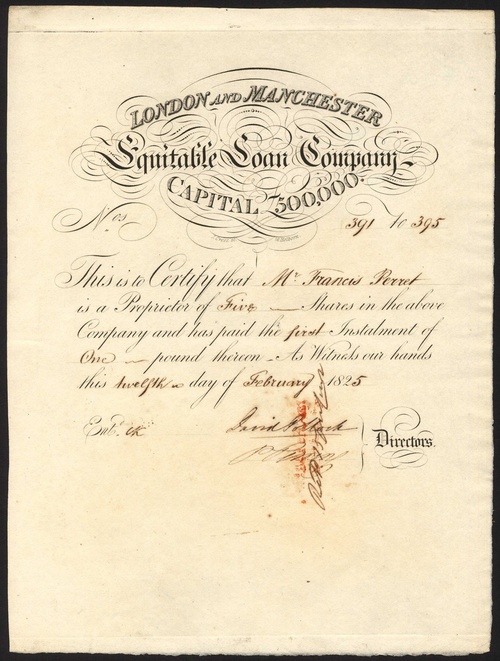 LONDON AND MANCHESTER
Equitable Loan Company
CAPITAL 500,000.
Nos. 391 to 395
This is to Certify that Mr Francis Perret
is a Proprietor of Five Shares in the above
Company and has paid the first Instalment of
One pound thereon. As Witness our hands
this twelfth day of February 1825
Entd.
David Pollock
Directors.